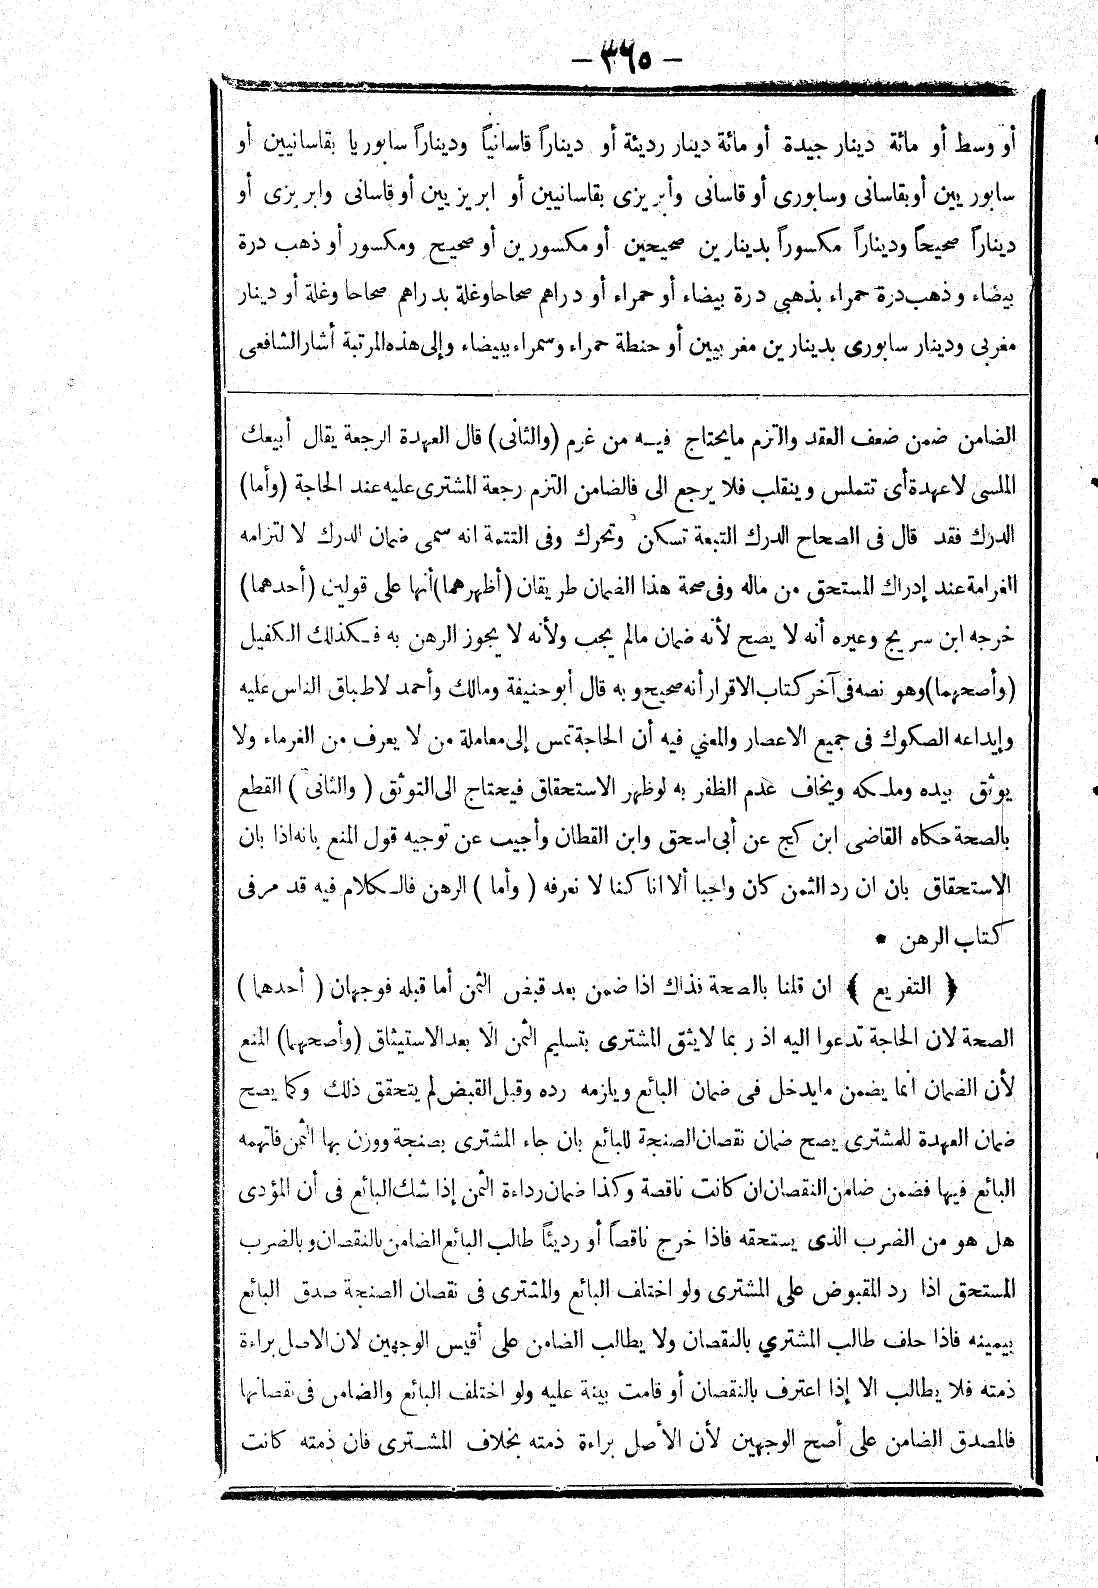 – ٣٦٥ –
أو وسط أو مائة دينار جيدة أو مائة دينار رديئة أو ديناراً قاسانياً وديناراً سابوريا بقاسانيين أو
سابوريين أو بقاسانى وسابورى أو قاسانى وأبريزى بقاسانيين أو ابريزيين أو قاسانى وابريزى أو
ديناراً صحيحاً وديناراً مكسوراً بدينارين صحيحين أو مكسورين أو صحيح ومكسور أو ذهب درة
بيضاء وذهب درة حمراء بذهبي درة بيضاء أو حمراء أو دراهم صحاحا وغلة بدراهم صحاحا وغلة أو دينار
مغربى ودينار سابورى بدينارين مغربيين أو حنطة حمراء وسمراء ببيضاء وإلى هذه المرتبة أشار الشافعى
الضامن ضمن ضعف العقد والتزم مايحتاج فيـه من غرم (والثانى) قال العهدة الرجعة يقال أبيعك
الملسى لا عهدة أى تتملس وينقلب فلا يرجع الى فالضامن التزم رجعة المشترى عليه عند الحاجة (وأما)
الدرك فقد قال فى الصحاح الدرك التبعة تسكن وتحرك وفى التتمة انه سمى ضمان الدرك لا لتزامه
الغرامة عند إدراك المستحق من ماله وفى صحة هذا الضمان طريقان (أظهرهما) أنها على قولين (أحدهما)
خرجه ابن سريج وغيره أنه لا يصح لأنه ضمان مالم يجب ولأنه لا يجوز الرهن به فـكذلك الكفيل
(وأصحهما) وهو نصه فى آخر كتاب الاقرار أنه صحيح وبه قال أبو حنيفة ومالك وأحمد لاطباق الناس عليه
وإيداعه الصكوك فى جميع الاعصار والمعني فيه أن الحاجة تمس إلى معاملة من لا يعرف من الغرماء ولا
يوثق بيده وملـكه ويخاف عدم الظفر به لو ظهر الاستحقاق فيحتاج الى التوثق (والثانى) القطع
بالصحة حكاه القاضى ابن كج عن أبى اسحق وابن القطان وأجيب عن توجيه قول المنع بانه اذا بان
الاستحقاق بان ان رد الثمن كان واجبا ألا انا كنا لا نعرفه (وأما) الرهن فالـكلام فيه قد مر فى
كتاب الرهن *
﴿ التفريع ﴾ ان قلنا بالصحة نذاك اذا ضمن بعد قبض الثمن أما قبله فوجهان (أحدهما)
الصحة لان الحاجة تدعوا اليه اذ ربما لا يثق المشترى بتسليم الثمن الا بعد الاستيثاق (وأصحهما) المنع
لأن الضمان انما يضمن مايدخل فى ضمان البائع ويلزمه رده وقبل القبض لم يتحقق ذلك وكما يصح
ضمان العهدة للمشترى يصح ضمان نقصان الصنجة للبائع بان جاء المشترى بصنجة ووزن بها الثمن فاتهمه
البائع فيها فضمن ضامن النقصان ان كانت ناقصة وكذا ضمان رداءة الثمن إذا شك البائع فى أن المؤدى
هل هو من الضرب الذى يستحقه فاذا خرج ناقصاً أو رديئاً طالب البائع الضامن بالنقصان وبالضرب
المستحق اذا رد المقبوض على المشترى ولو اختلف البائع والمشترى فى نقصان الصنجة صدق البائع
بيمينه فاذا حلف طالب المشتري بالنقصان ولا يطالب الضامن على أقيس الوجهين لان الاصل براءة
ذمته فلا يطالب الا إذا اعترف بالنقصان أو قامت بينة عليه ولو اختلف البائع والضامن فى نقصانها
فالمصدق الضامن على أصح الوجهين لأن الأصل براءة ذمته بخلاف المشـترى فان ذمته كانت